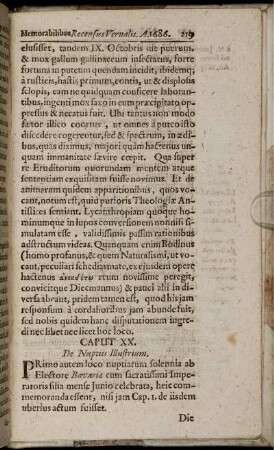 Memorabilibus Recensus Vernalis. A. 1686. 219
elusisset, tandem IX. Octobris die puerum,
& mox gallum gallinaceum insectatus, forte
fortuna in puteum quendam incidit, ibidemq;
à rusticis, hastis primum, contis, ut & displosis
sclopis, eam ne quidquam conficere laboran-
tibus, ingenti mox saxo in eum præcipitato op-
pressus & necatus fuit. Ubi tantus non modo
fœtor illico coortus, ut omnes à puteo isto
discedere cogerentur, sed & spectrum, in ædi-
bus, quas diximus, majori quàm hactenus un-
quam immanitate sævire cœpit. Qua super
re Eruditorum quorundam mentem atque
sententiam exquisitam fuisse novimus. Et de
animarum quidem apparitionibus, quos vo-
cant, notum est, quid purioris Theologiæ An-
tistites sentiant. Lycanthropiam quòque ho-
minumque in lupos conversionem nonnisi si-
mulatam esse, validissimis passim rationibus
adstructum videas. Quanquam enim Bodinus
(homo profanus, & quem Naturalismi, ut vo-
cant, peculiari schediasmate, ex ejusdem opere
hactenus ἀνεκδότῳ etum novissime peregit,
convicitque Diecmannus) & pauci alii in di-
versa abeant, pridem tamen est, quod his jam
responsum à cordatioribus jam abunde fuit,
sed nobis quidem hanc disputationem ingre-
di nec libet nec licet hoc loco.
CAPUT XX.
De Nuptiis Illustrium.
PRimo autem loco nuptiarum solennia ab
Electore Bavariæ cum sacratissimi Impe-
ratoris filia mense Junio celebrata, heic com-
memoranda essent, nisi jam Cap. I. de iisdem
uberius actum fuisset.
Die